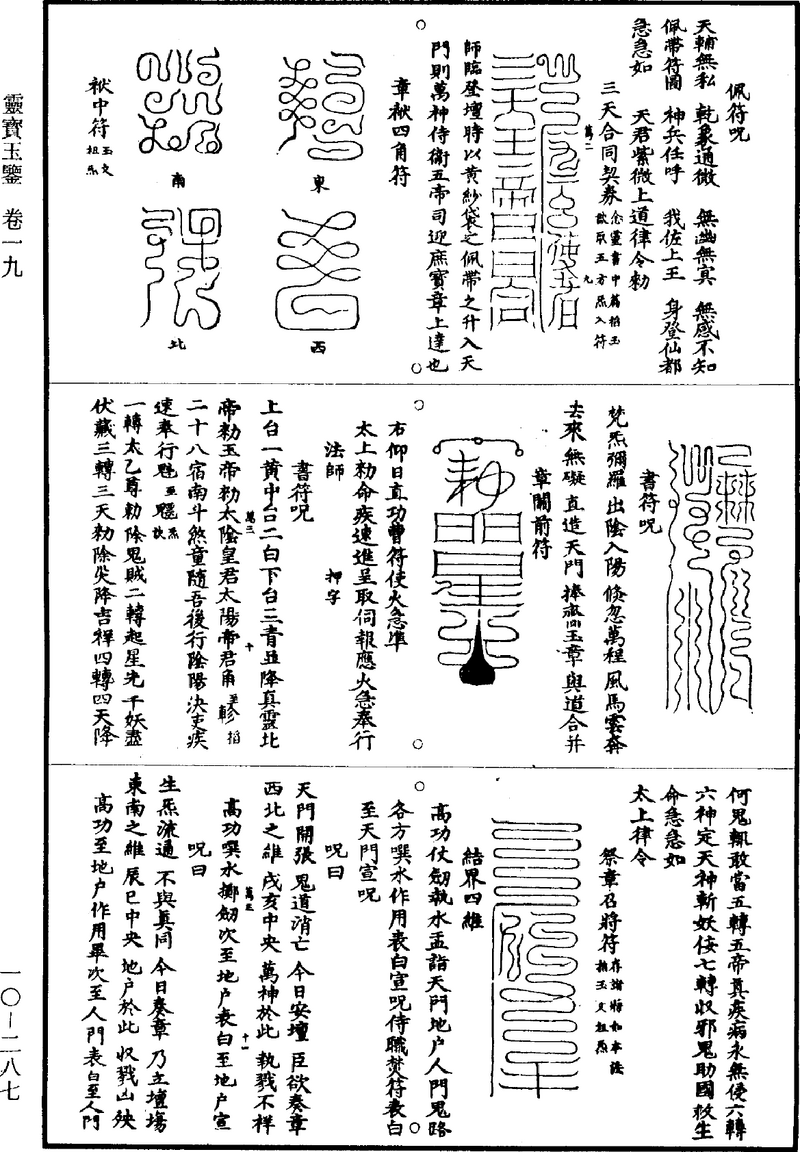 靈寶玉鑒　卷一九
一〇—二八七
佩符呪
天輔無私　乾象通微　無幽無冥　無感不知
佩帶符圖　神兵任呼　我佐上王　身登仙都
急急如　天君紫微上道律令勑
三天合同契券
念靈書中篇掐玉
訣取五方炁入符
師臨登壇時以黃紗袋之佩帶之升入天
門則萬神侍衛五帝司迎庶寶章上達也
章獄四角符
東
南
西
北
獄中符
玉文
祖炁
書符呪
梵炁彌羅　出陰入陽　倏忽萬程　風馬雲奔
去來無礙　直造天門　捧齎玉章　與道合并
章關前符
右仰日直功曹符使火急準
太上勑命疾速進呈取伺報應火急奉行
法師　押字
書符呪
上台一黃中台二白下台三青並降真靈北
帝勑玉帝勑太陰皇君太陽帝君角至軫掐
二十八宿南斗煞童隨吾後行陰陽決吏疾
速奉行
一轉太乙尊勑除鬼賊二轉起星光千妖盡
伏藏三轉三天勑除災降吉祥四轉四天降
何鬼輒敢當五轉五帝真疾病永無侵六轉
六神定天神斬妖侫七轉收邪鬼助國救生
命急急如
太上律令
祭章召將符
存諸將如本法
掐玉文祖炁
結界四維
高功仗劔執水盂詣天門地户人門鬼路
各方噀水作用表白宣呪侍職焚符表白
至天門宣呪
呪曰
天門開張　鬼道消亡　今日安壇　臣欲奏章
西北之維　戌亥中央　萬神於此　執戮不祥
高功噀水擲劔次至地户表白至地户宣
呪曰
生炁流通　不與真同　今日奏章　乃立壇場
東南之維　辰巳中央　地户於此　收戮凶殃
高功至地户作用畢次至人門表白至人門